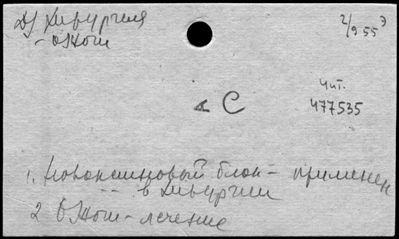 Д) Хирургия
- Ожоги
2/9 55 г
А С
Чит.
477535
1. Новокаиновый блок - применен
-"- в хирургии
2 Ожоги - лечение